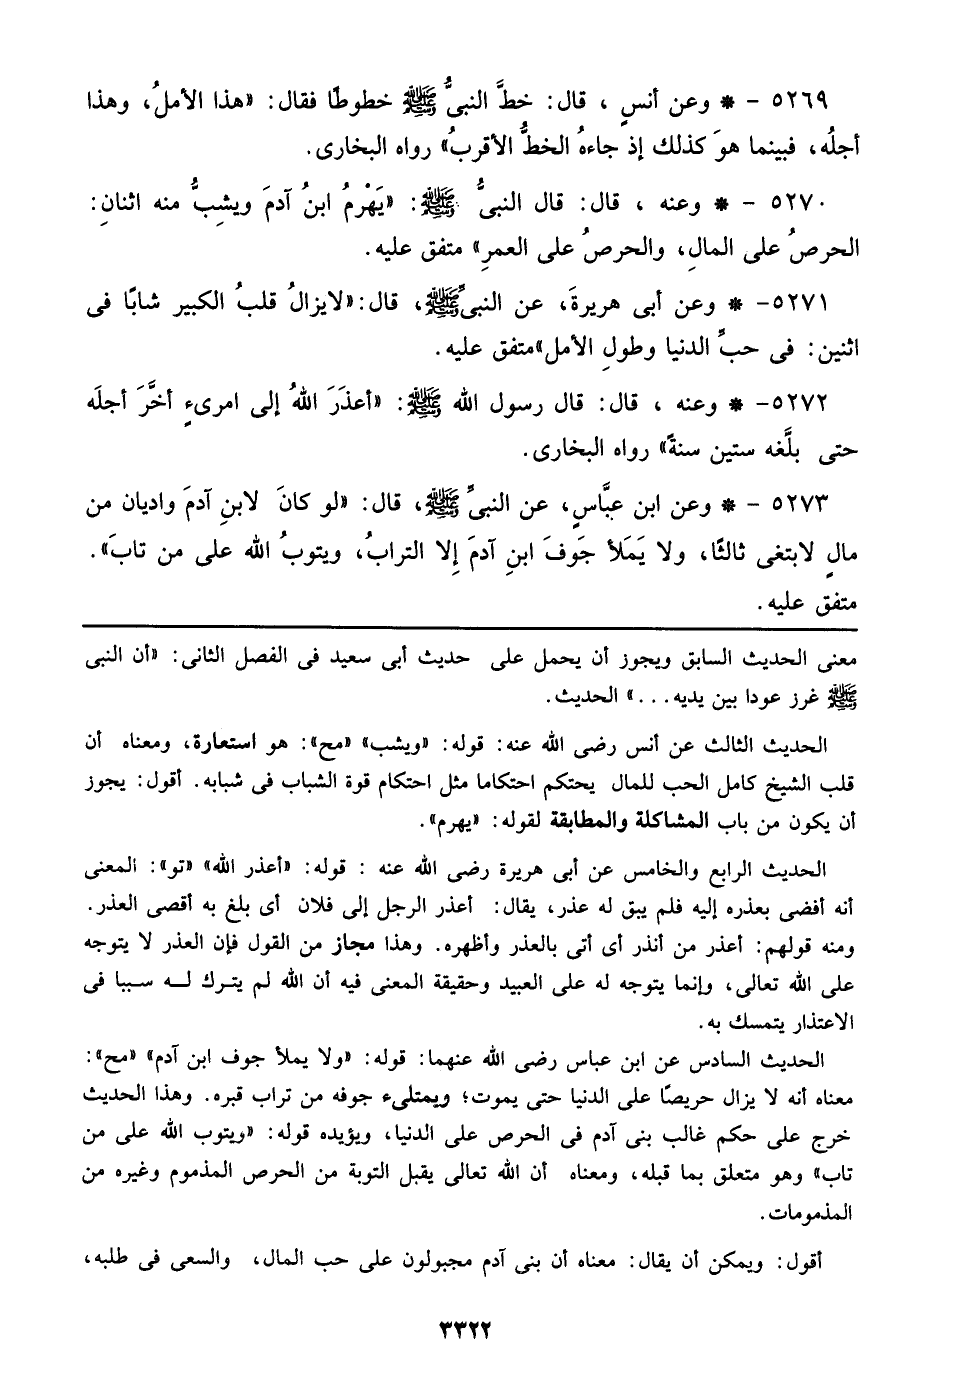 ٥٢٦٩ - * وعن أنسٍ ، قال: خطَّ النبيُّ ﷺ خطوطًا فقال: «هذا الأملُ، وهذا
أجلُه، فبينما هوَ كذلك إذ جاءهُ الخطُّ الأقربُ» رواه البخارى.
٥٢٧٠ - * وعنه ، قال: قال النبىُّ ﷺ: «يَهْرمُ ابنُ آدمَ ويشِبُّ منه اثنانِ:
الحرصُ على المالِ، والحرصُ على العمرِ» متفق عليه.
٥٢٧١- * وعن أبى هريرةَ، عن النبىِّ ﷺ، قال:«لايزالُ قلبُ الكبير شابًا فى
اثنين: فى حبِّ الدنيا وطولِ الأمل»متفق عليه.
٥٢٧٢- * وعنه ، قال: قال رسول الله ﷺ: «أعذَرَ اللهُ إلى امرىءٍ أخَّرَ أجلَه
حتى بلَّغه ستين سنةً» رواه البخارى.
٥٢٧٣ - * وعن ابن عبَّاسٍ، عن النبىِّ ﷺ، قال: «لو كانَ لابنِ آدمَ واديان من
مالٍ لابتغى ثالثًا، ولا يَمَلأ جَوفَ ابنِ آدمَ إِلا الترابُ، ويتوبُ الله على من تابَ».
متفق عليه.
معنى الحديث السابق ويجوز أن يحمل على حديث أبى سعيد فى الفصل الثانى: «أن النبى
ﷺ غرز عودا بين يديه...» الحديث.
الحديث الثالث عن أنس رضى الله عنه: قوله: «ويشب» «مح»: هو استعارة، ومعناه أن
قلب الشيخ كامل الحب للمال يحتكم احتكاما مثل احتكام قوة الشباب فى شبابه. أقول: يجوز
أن يكون من باب المشاكلة والمطابقة لقوله: «يهرم».
الحديث الرابع والخامس عن أبى هريرة رضى الله عنه : قوله: «أعذر الله» «تو»: المعنى
أنه أفضى بعذره إليه فلم يبق له عذر، يقال: أعذر الرجل إلى فلان أى بلغ به أقصى العذر.
ومنه قولهم: أعذر من أنذر أى أتى بالعذر وأظهره. وهذا مجاز من القول فإن العذر لا يتوجه
على الله تعالى، وإنما يتوجه له على العبيد وحقيقة المعنى فيه أن الله لم يترك له سببا فى
الاعتذار يتمسك به.
الحديث السادس عن ابن عباس رضى الله عنهما: قوله: «ولا يملأ جوف ابن آدم» «مح»:
معناه أنه لا يزال حريصًا على الدنيا حتى يموت؛ ويمتلىء جوفه من تراب قبره. وهذا الحديث
خرج على حكم غالب بنى آدم فى الحرص على الدنيا، ويؤيده قوله: «ويتوب الله على من
تاب» وهو متعلق بما قبله، ومعناه أن الله تعالى يقبل التوبة من الحرص المذموم وغيره من
المذمومات.
أقول: ويمكن أن يقال: معناه أن بنى آدم مجبولون على حب المال، والسعى فى طلبه،
٣٣٢٢